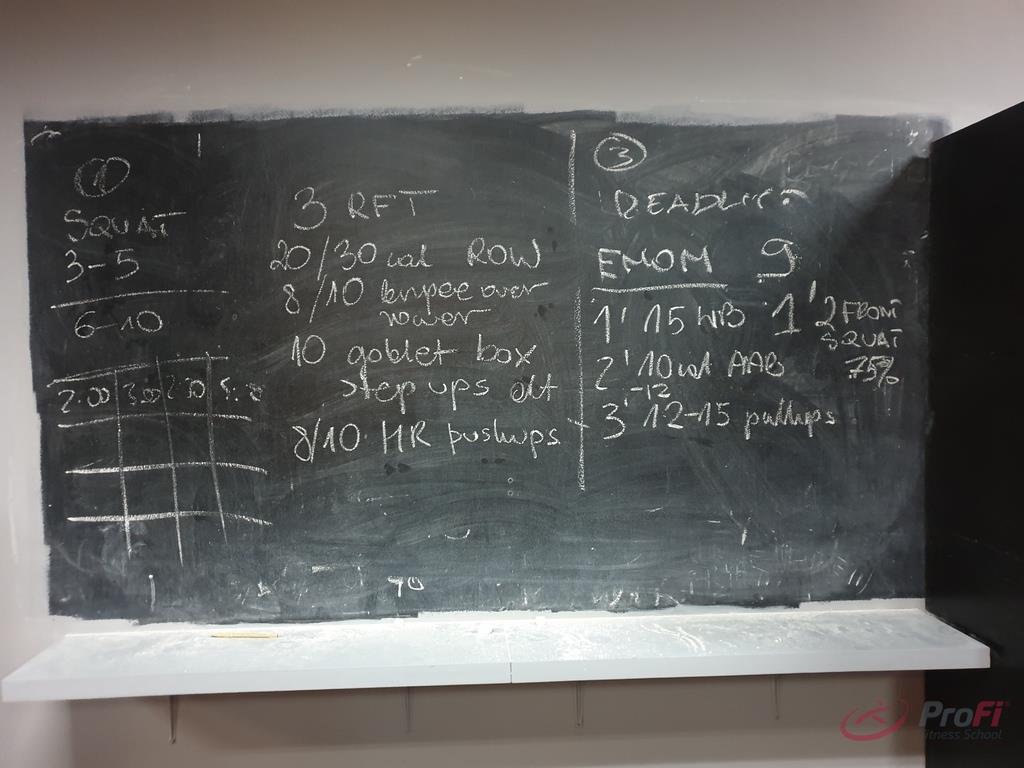 1
SQUAT
3-5
6-10
2:00 3:00 2:30
3 RFT
20/30 cal ROW
8/10 burpee over
rower
10 goblet box
step ups alt
8/10 HR pushups
70
3
DEADLIFT
EMOM 9
1' 15 WB
2' 10 cal AAB
-12
3' 12-15 pullups
1' 2 FRONT
SQUAT
75%
ProFi
Fitness School